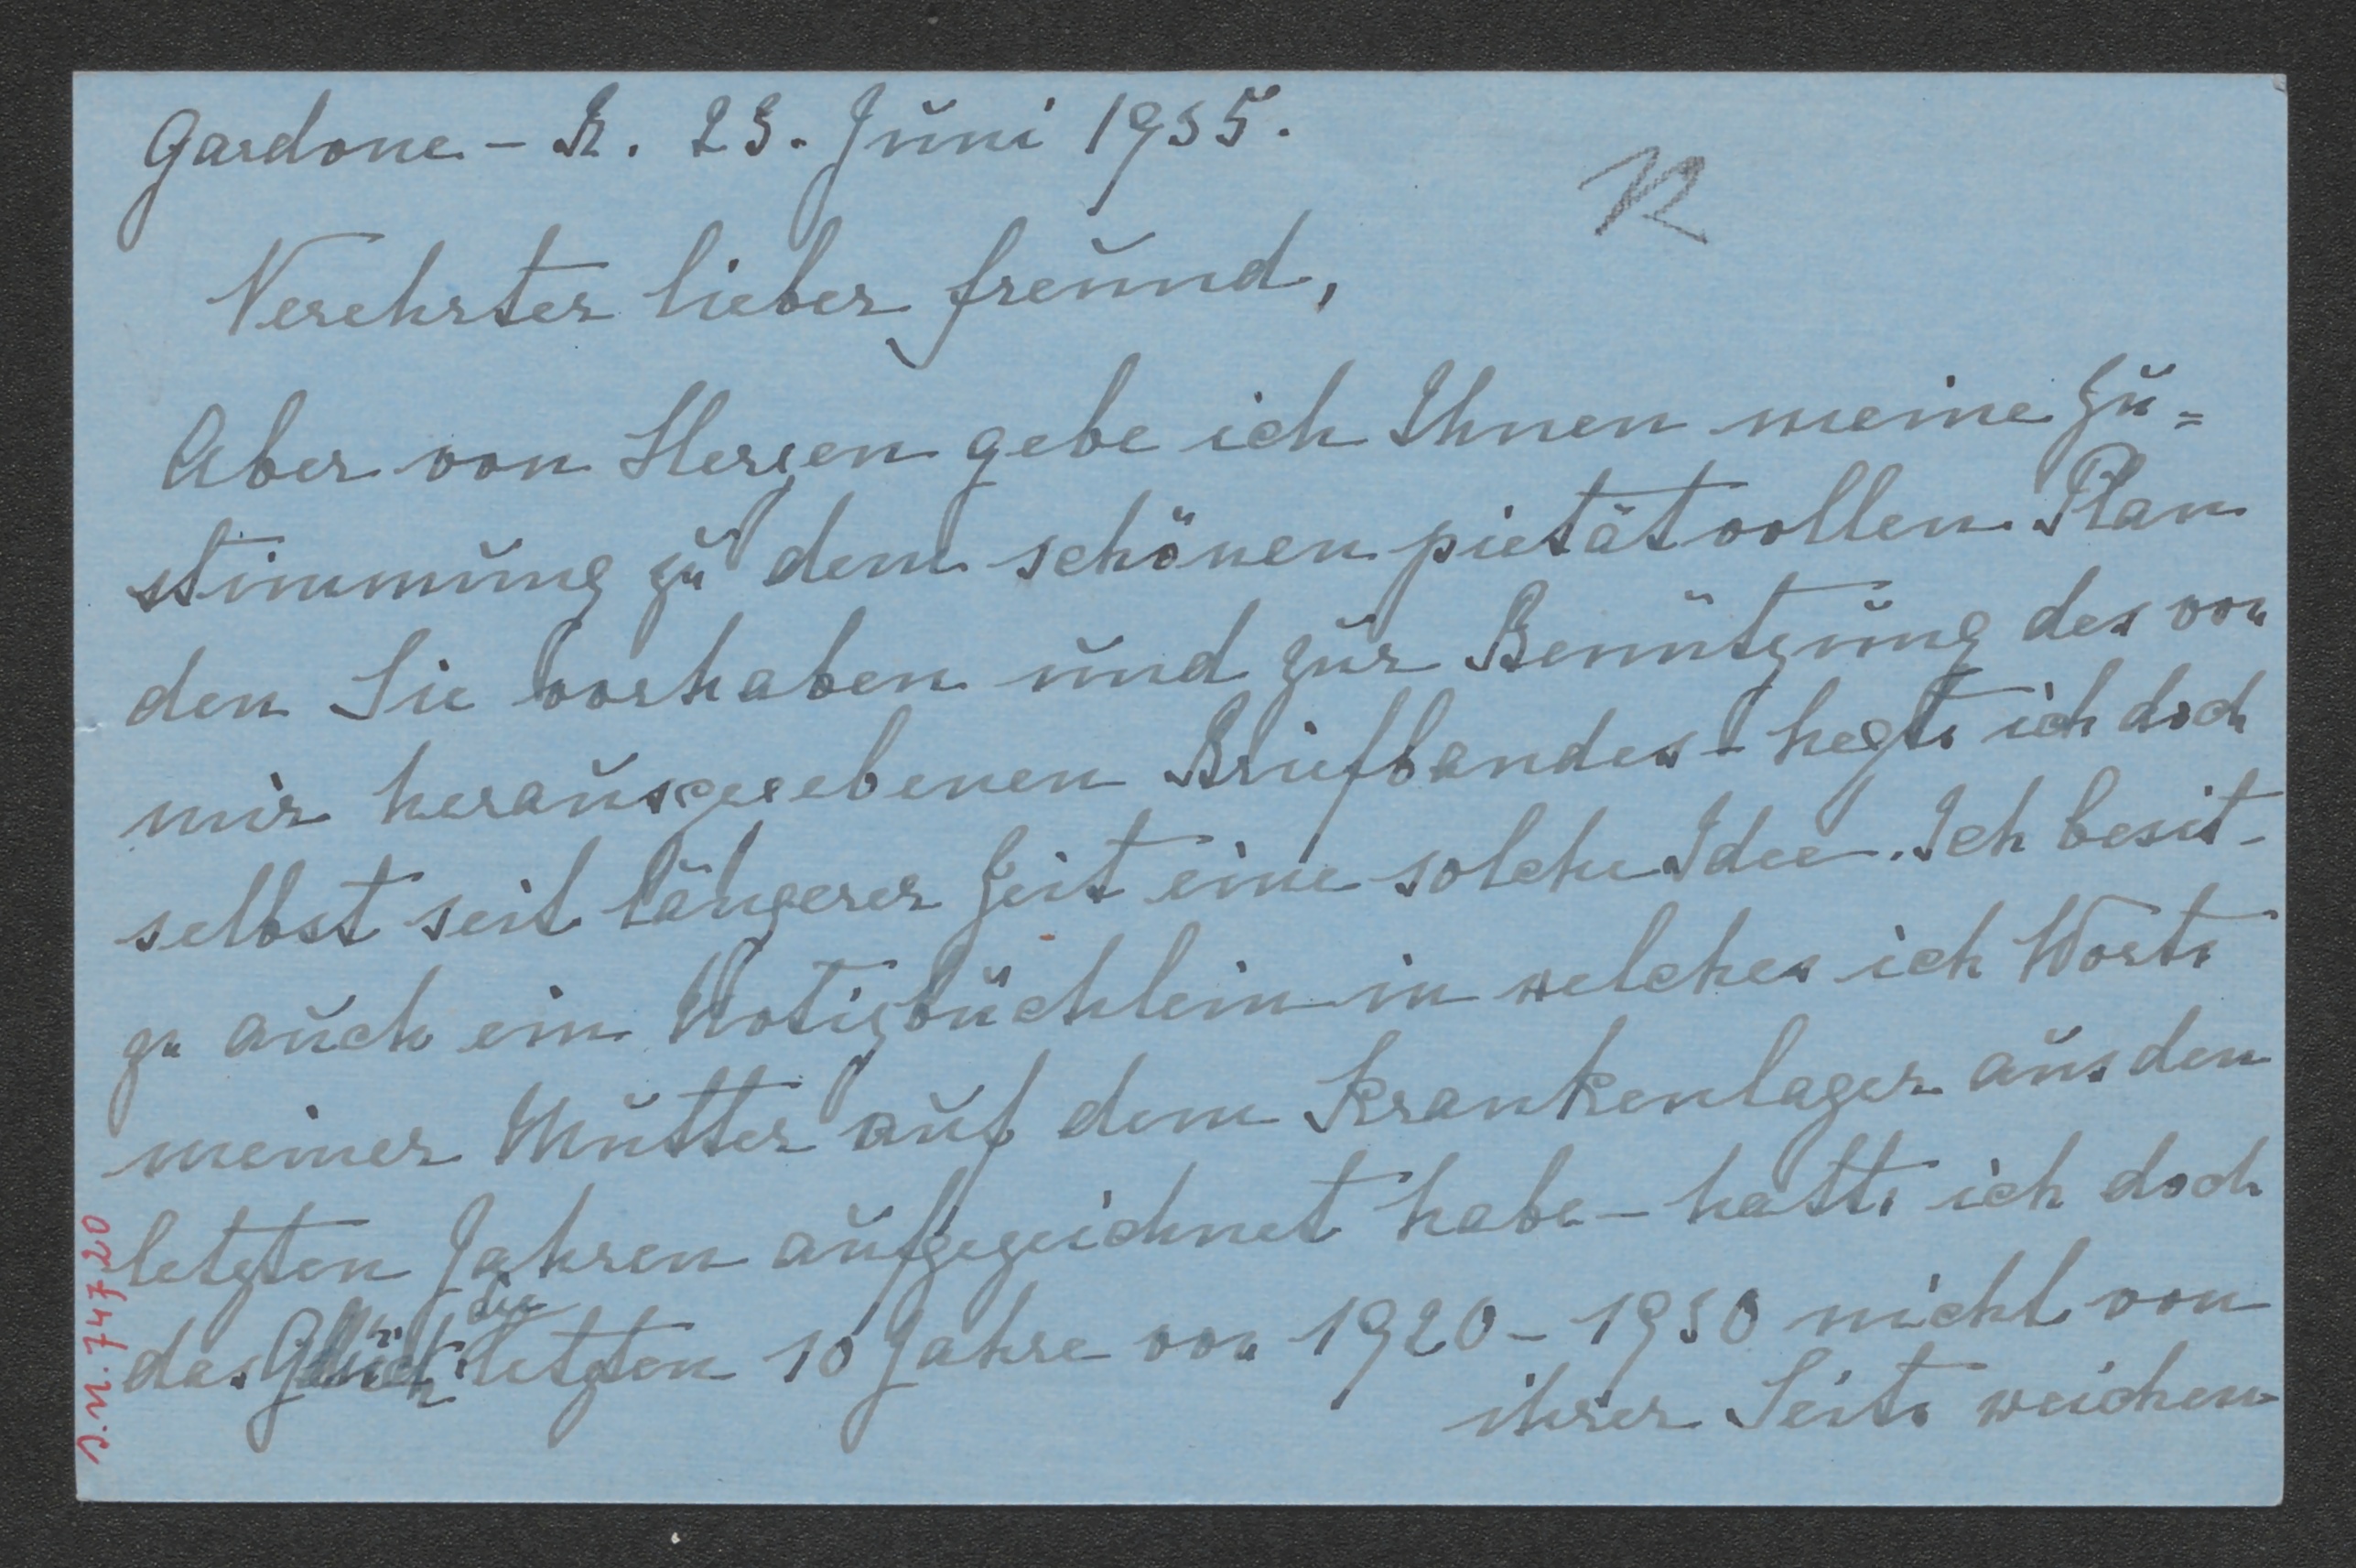 Gardone - R. 23. Juni 1935.
Verehrter lieber Freund,
Aber von Herzen gebe ich Ihnen meine Zu=
stimmung zu dem schönen pietätvollen Plan
den Sie vorhaben und zur Benützung des von
mir herausgegebenen Briefbandes - hegte ich doch
selbst seit längerer Zeit eine solche Idee. Ich besit-
ze auch ein Notizbüchlein in welches ich Worte
meiner Mutter auf dem Krankenlager aus den
letzten Jahren aufgezeichnet habe - hatte ich doch
das Glück die letzten 10 Jahre von 1920 - 1930 nicht von
ihrer Seite weichen
J.N. 74720